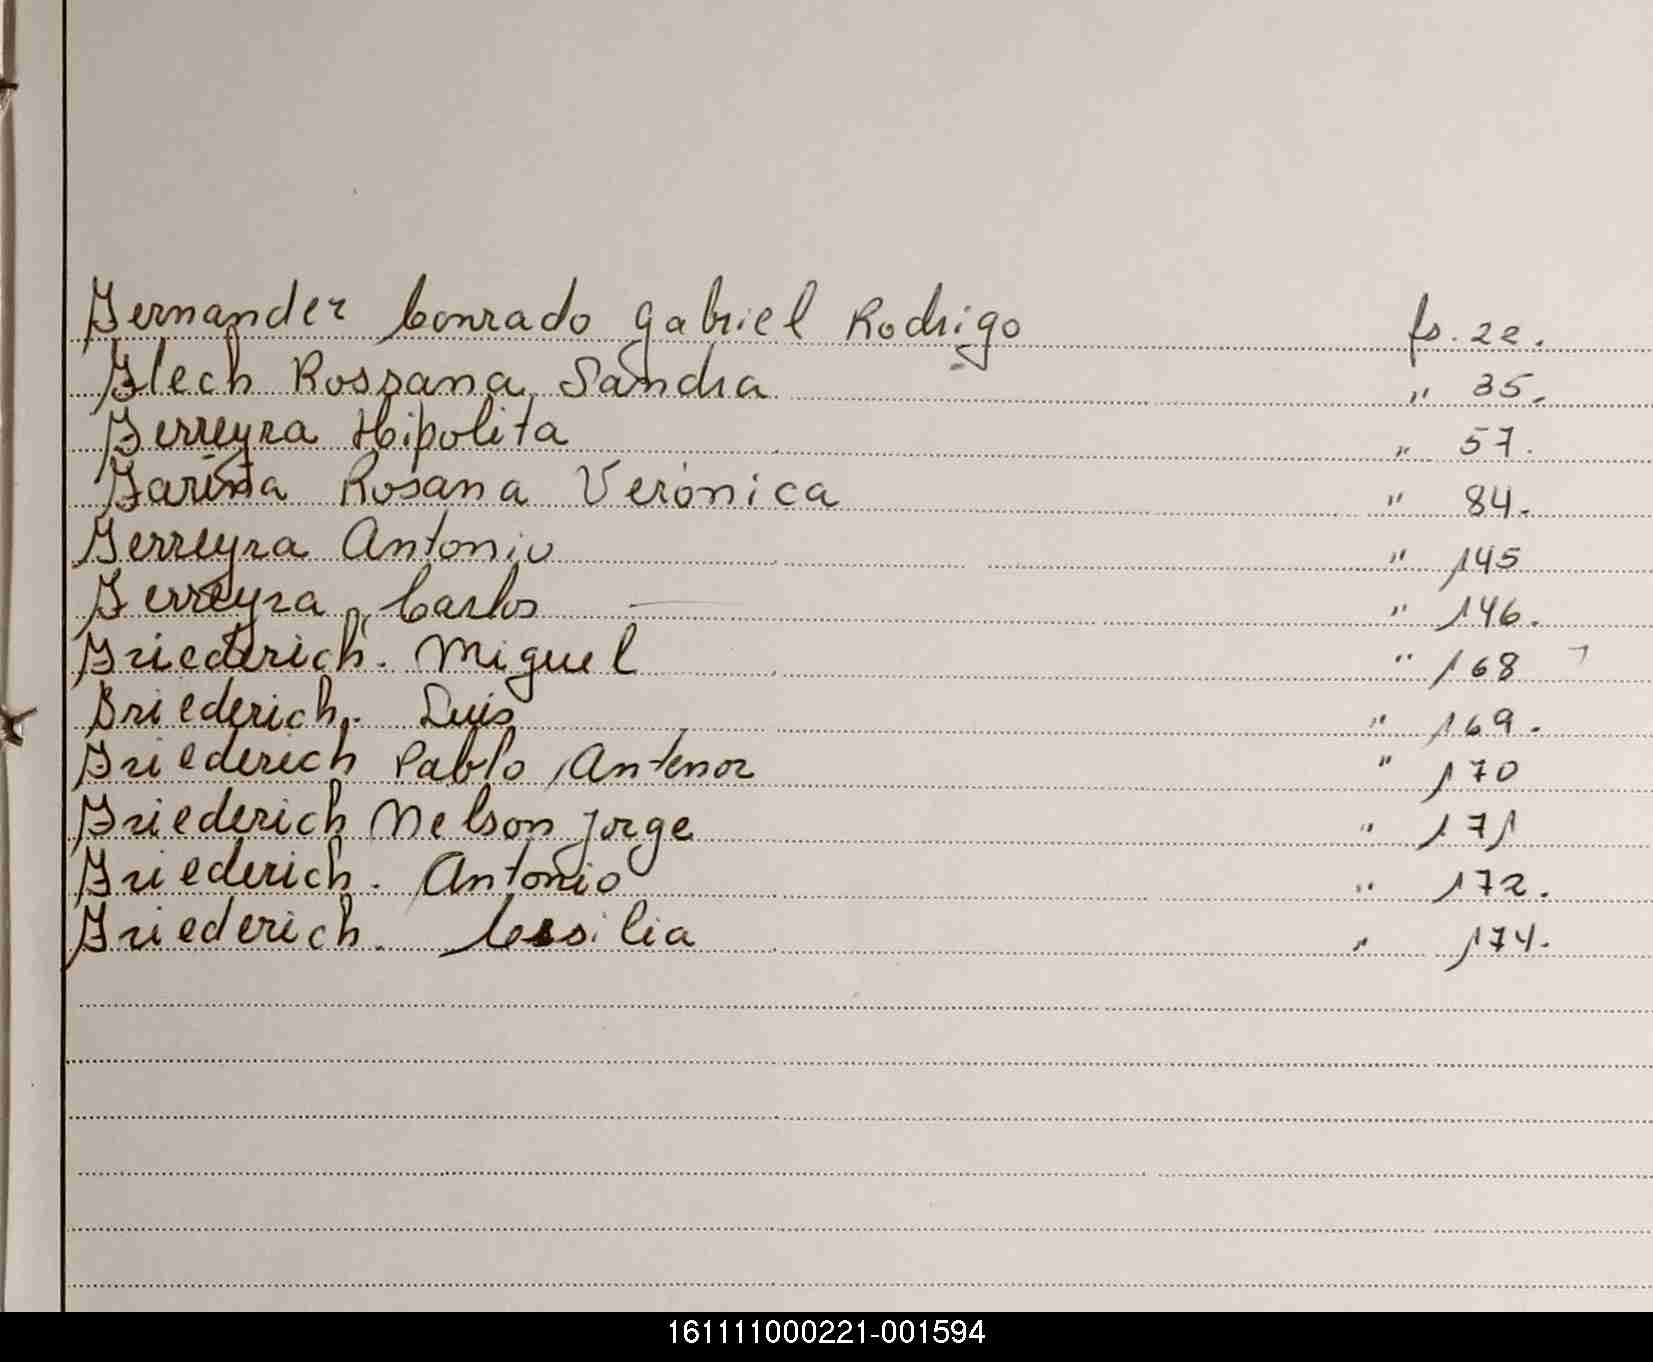 Fernandez Conrado Gabriel Rodrigo fs. 22.
Flech Rossana Sandra " 35.
Ferreyra Hipolita " 57.
Fariña Rosana Verónica " 84.
Ferreyra Antonio " 145
Ferreyra, Carlos " 146.
Friederich. Miguel " 168
Friederich. Luis " 169.
Friederich Pablo Antenor " 170
Friederich Nelson Jorge " 171
Friederich. Antonio " 172.
Friederich. Cesilia " 174.
161111000221-001594